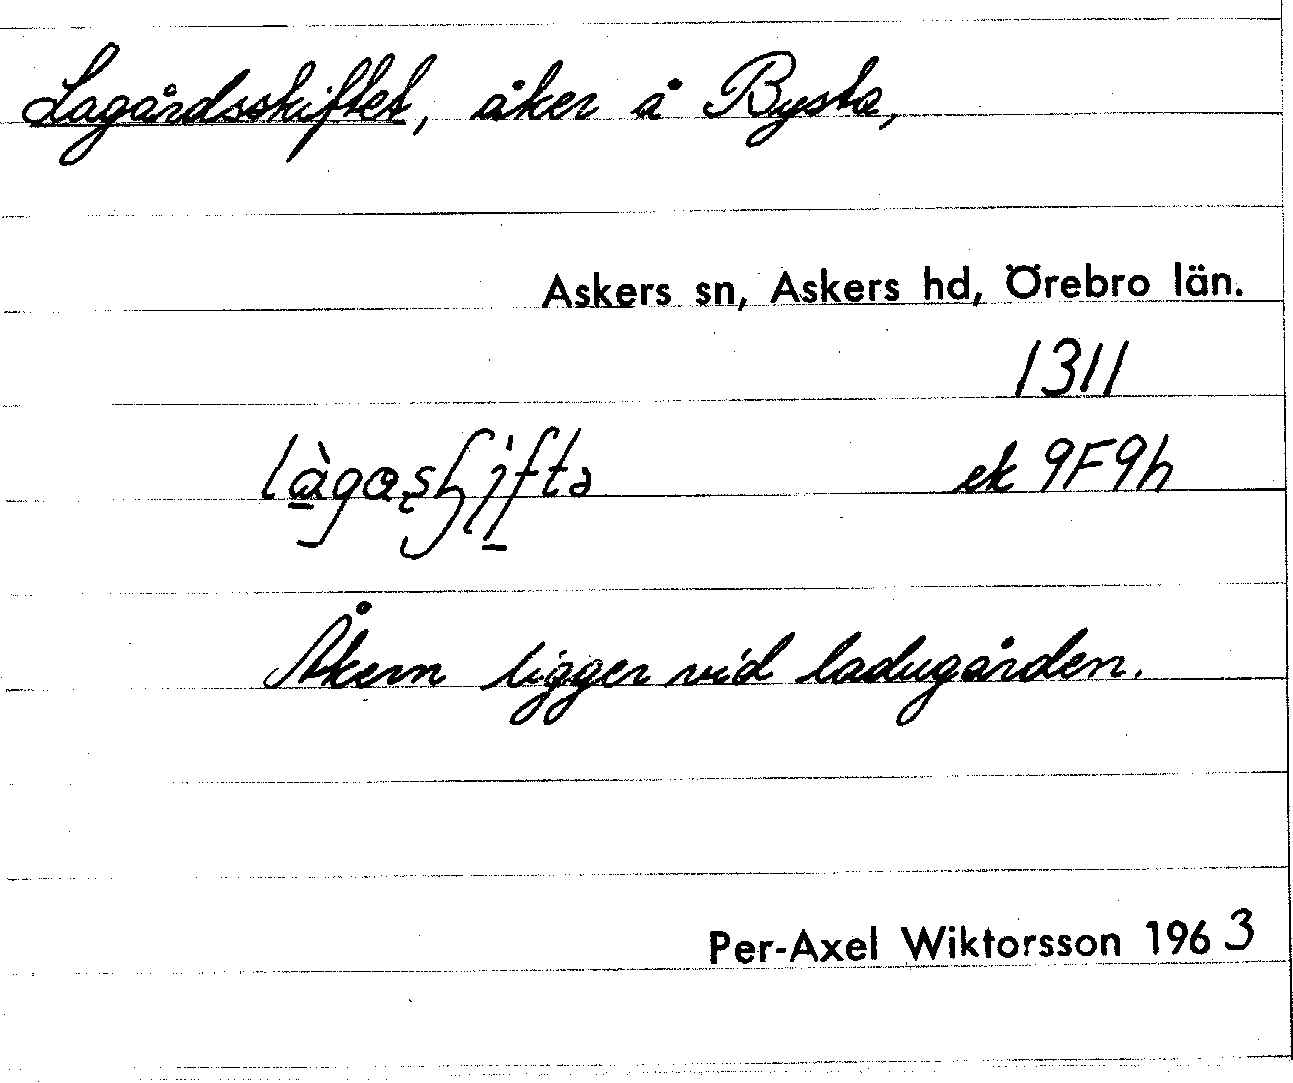 Lagårdsskiftet, åker å Bysta,
Askers sn, Askers hd, Örebro län.
1311
ek 9F9h
Åkern ligger vid ladugården.
Per-Axel Wiktorsson 1963